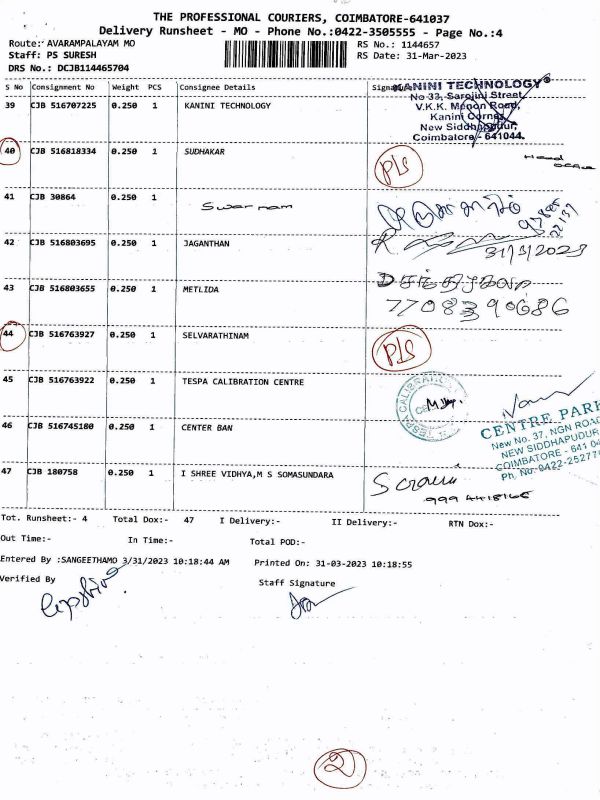 THE PROFESSIONAL COURIERS, COIMBATORE-641037
Delivery Runsheet - MO - Phone No.:0422-3505555 - Page No.:4
Route: AVARAMPALAYAM MO
RS No.: 1144657
Staff: PS SURESH
RS Date: 31-Mar-2023
DRS No.: DCJB114465704
S No Consignment No Weight PCS Consignee Details Signature
39 CJB 516707225 0.250 1 KANINI TECHNOLOGY
KANINI TECHNOLOGY®
No 33, Sarojini Street
V.K.K. Menon Road,
Kanini Corner,
New Siddhapudur,
Coimbatore - 641044.
40 CJB 516818334 0.250 1 SUDHAKAR
Head
office
41 CJB 30864 0.250 1 Swarnam
42 CJB 516803695 0.250 1 JAGANTHAN
31/3/2023
43 CJB 516803655 0.250 1 METLIDA
7708390686
44 CJB 516763927 0.250 1 SELVARATHINAM
45 CJB 516763922 0.250 1 TESPA CALIBRATION CENTRE
46 CJB 516745180 0.250 1 CENTER BAN
CENTRE PARK
New No. 37, NGN ROAD
NEW SIDDHAPUDUR
COIMBATORE - 641 04
Ph. No. 0422-25277
47 CJB 180758 0.250 1 I SHREE VIDHYA,M S SOMASUNDARA
Tot. Runsheet:- 4 Total Dox:- 47 I Delivery:- II Delivery:- RTN Dox:-
Out Time:- In Time:- Total POD:-
Entered By :SANGEETHAMO 3/31/2023 10:18:44 AM Printed On: 31-03-2023 10:18:55
Verified By Staff Signature
2